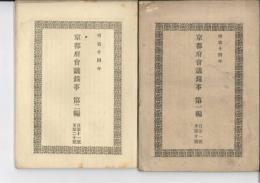 明治十四年
京都府會議錄事 第一編
自第一號
至第十號
明治十四年
京都府會議錄事 第二編
自第十一號
至第二十號